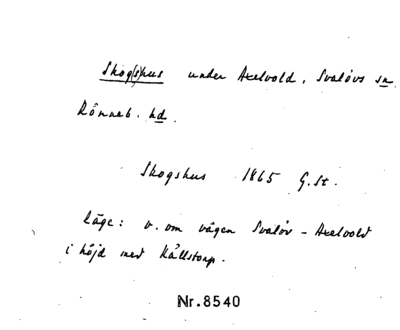 Skog(s)hus under Axelvold, Svalövs sn
Rönneb. hd.
Skogshus 1865 G.St.
Läge: v. om vägen Svalöv - Axelvold
i höjd med Källstorp.
Nr.8540